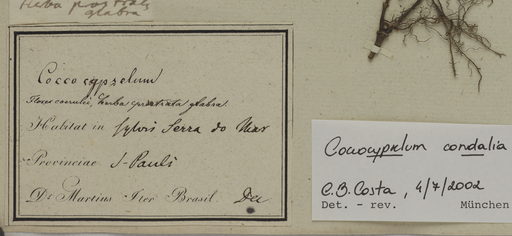 herba prostrata
glabra
Coccocypselum
Flores coerulei, herba prostrata glabra.
Habitat in sylvis Serra do Mar
Provinciae S. Pauli
Dr Martius Iter Brasil Dec
Coccocypselum condalia
C.B. Costa, 4/7/2002
Det. - rev. München